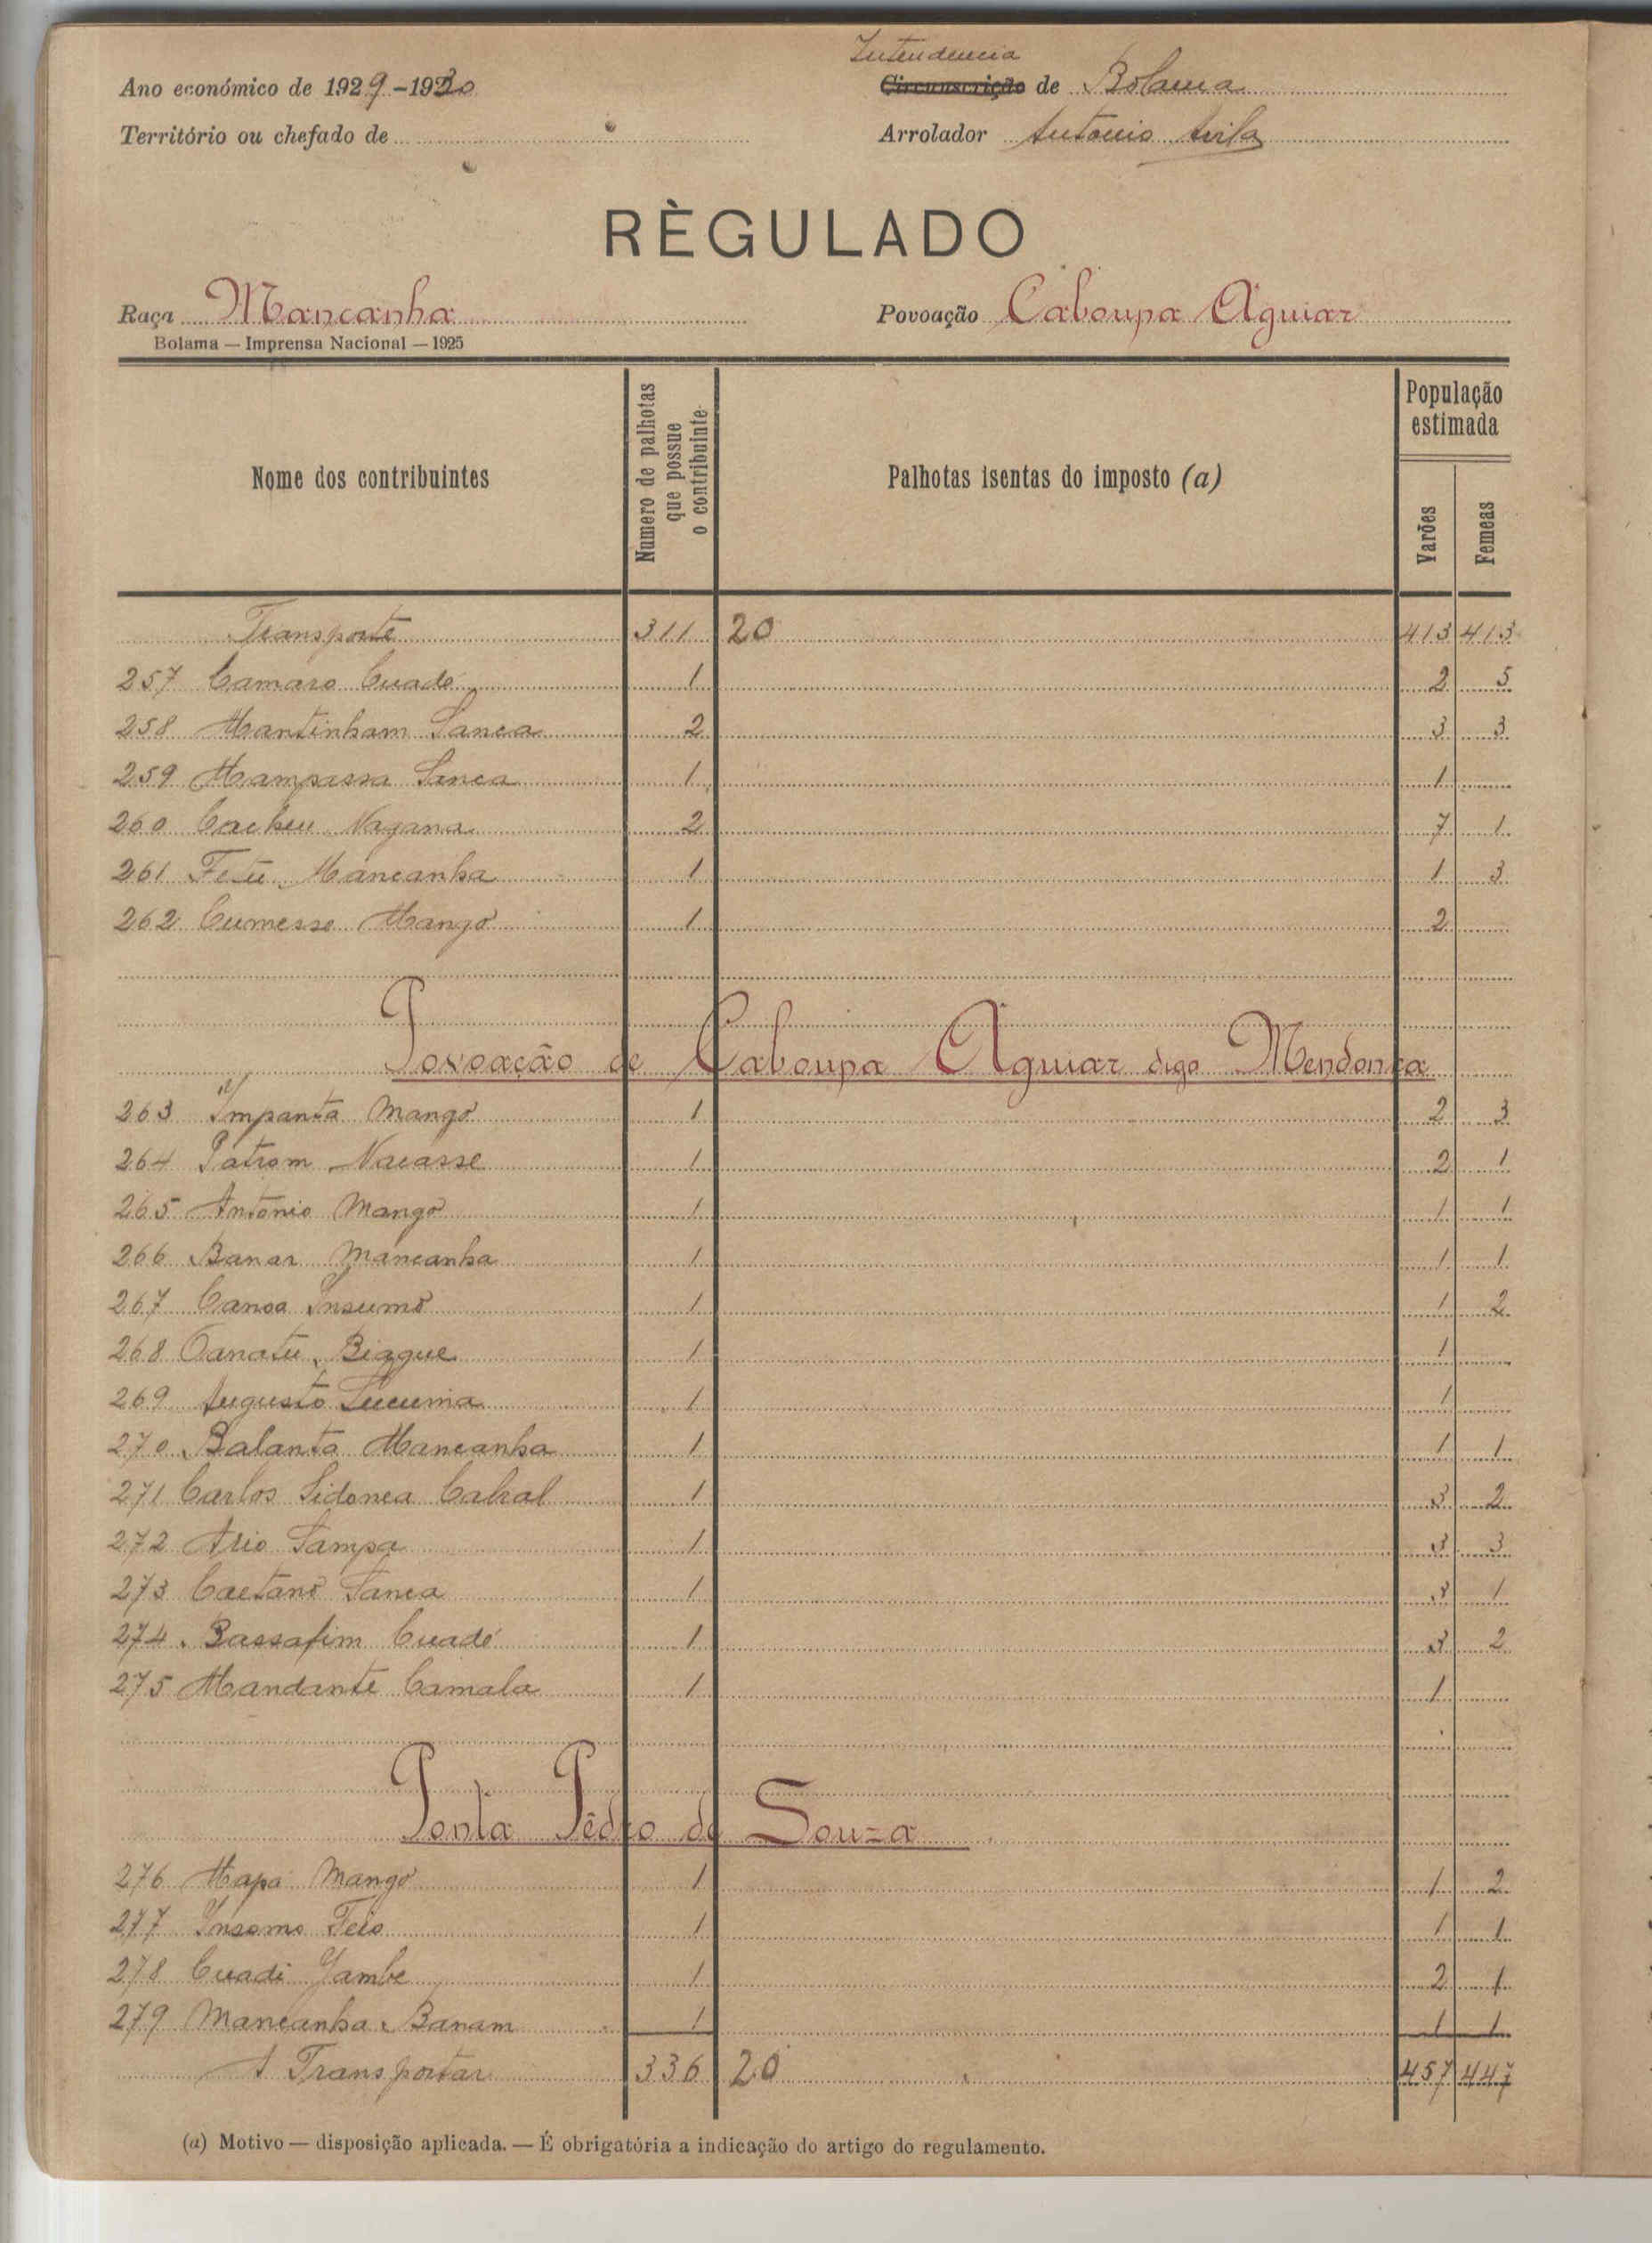 Ano económico de 1929-1930
Intendencia
Circunscrição de Bolama
Território ou chefado de
Arrolador Antonio Avila
RÈGULADO
Raça Mancanha
Povoação Caboupa Aguiar
Bolama — Imprensa Nacional — 1925
Nome dos contribuintes
Numero de palhotas que possue o contribuinte
Palhotas isentas do imposto (a)
População estimada
Varões
Femeas
Transporte 311 20 413 413
257 Camaro Cuadé 1 2 5
258 Mantinham Sanca 2 3 3
259 Mampassa Sanca 1 1
260 Cacheu Nagana 2 7 1
261 Fetu Mancanha 1 1 3
262 Cumesse Mango 1 2
Povoação de Caboupa Aguiar digo Mendonça
263 Impanta Mango 1 2 3
264 Patrom Nacasse 1 2 1
265 Antonio Mango 1 1 1
266 Banar Mancanha 1 1 1
267 Canoa Insumo 1 1 2
268 Canatu Biague 1 1
269 Augusto 1 1
270 Balanta Mancanha 1 1 1
271 Carlos Sidonea Cabral 1 3 2
272 Sampa 1 3 3
273 Caetano Sanca 1 3 1
274 Bassafim Cuadé 1 3 2
275 Mandante Camala 1 1
Ponta Pedro de Souza
276 Mapa Mango 1 1 2
277 Insomo Feio 1 1 1
278 Cuadi Jambe 1 2 1
279 Mancanha Banam 1 1 1
A Transportar 336 20 457 447
(a) Motivo — disposição aplicada. — É obrigatória a indicação do artigo do regulamento.